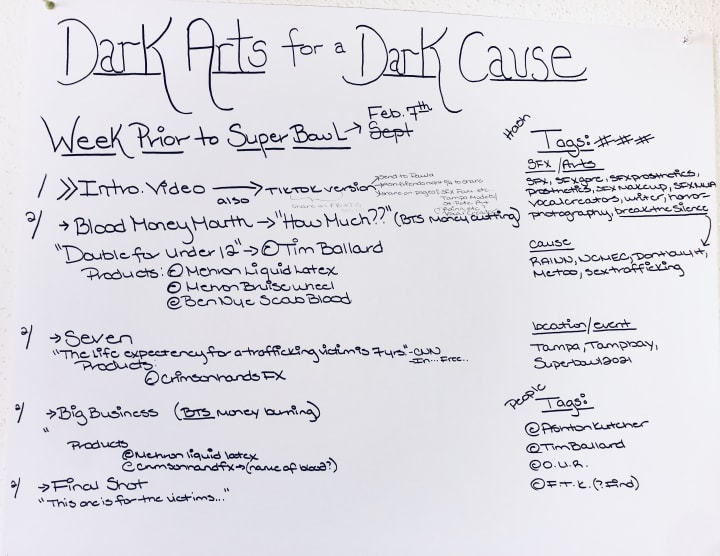 Dark Arts for a Dark Cause
Week Prior to Super Bowl → Feb. 7th
Sept
1/ >> Intro. Video → TIKTOK version
also
Send to Paula
2/ → Blood Money Mouth → "How Much??" (BTS Money cutting)
"Double for under 12" → @Tim Ballard
Products: @Mehron Liquid Latex
@Mehron Bruise wheel
@Ben Nye Scab Blood
2/ → Seven
"The life expectency for a trafficking victim is 7 yrs" - CNN
In... Free..
Products:
@CrimsonhandsFX
2/ → Big Business (BTS Money burning)
"
Products
@Mehron liquid latex
@crimsonhandfx → (name of blood?)
2/ → Final Shot
"This one is for the victims..."
Hash
Tags: ###
SFX/Arts
SFX, SFXgore, SFXprosthetics,
prosthetics, SFX Makeup, SFXMUA
vocalcreators, writer, horror-
photography, breakthesilence
cause
RAINN, NCMEC, Donthurtit,
Metoo, sextrafficking
location/event
Tampa, Tampabay,
Superbowl2021
people
Tags:
@Ashton Kutcher
@Tim Ballard
@O.U.R.
@F.T.K. (? find)